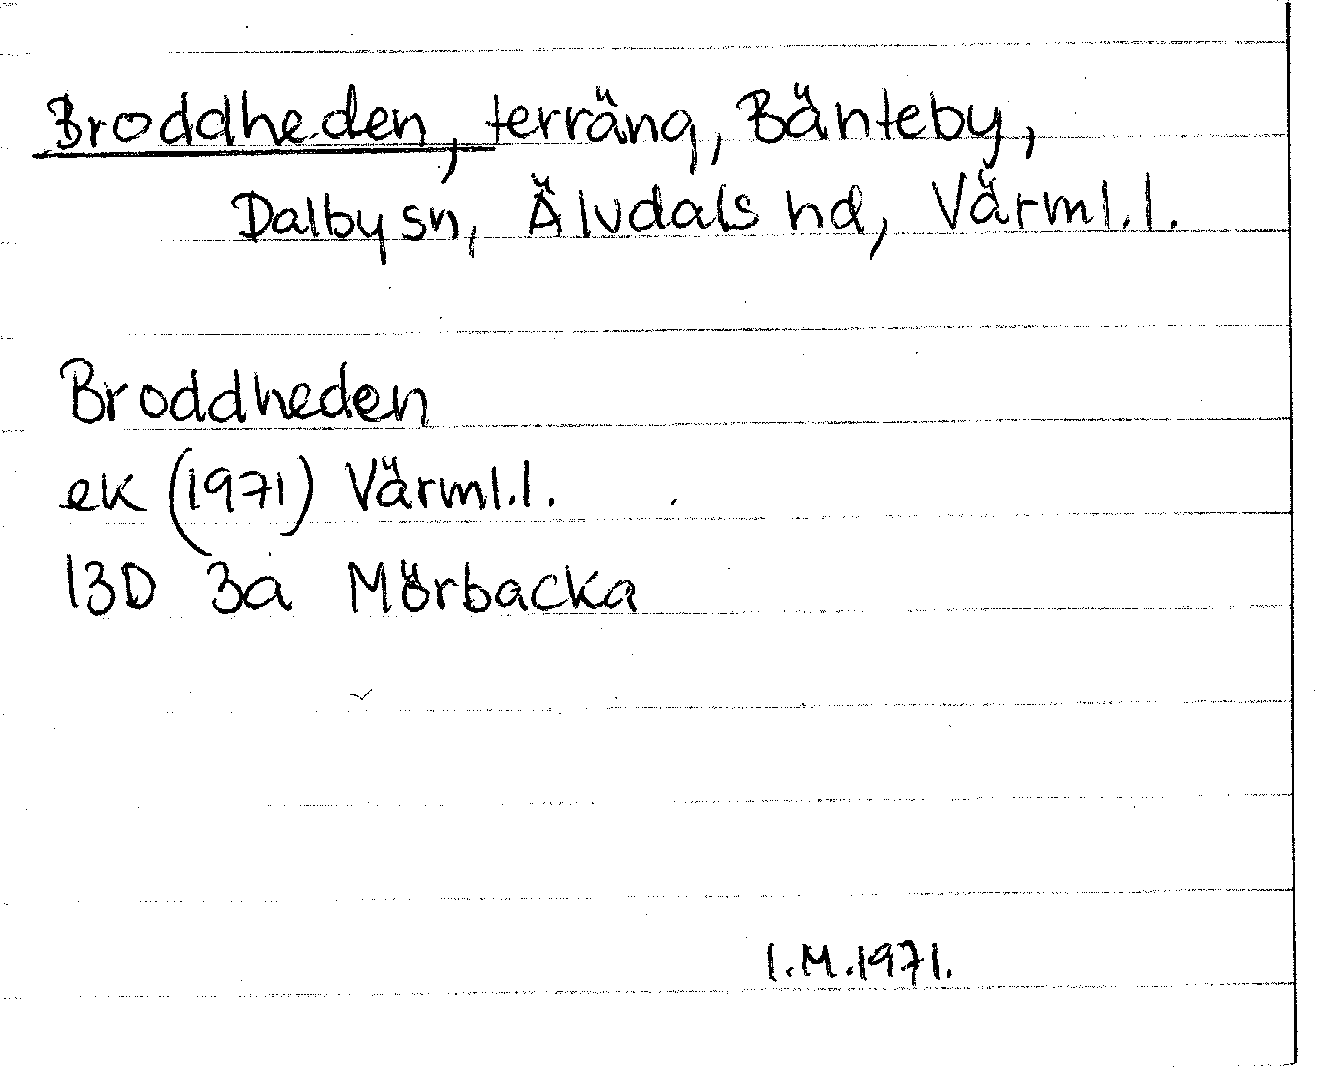 Broddheden, terräng, Bänteby,
Dalby sn, Älvdals hd, Värml.l.
Broddheden
ek (1971) Värml.l.
13D 3a Mörbacka
I.M.1971.